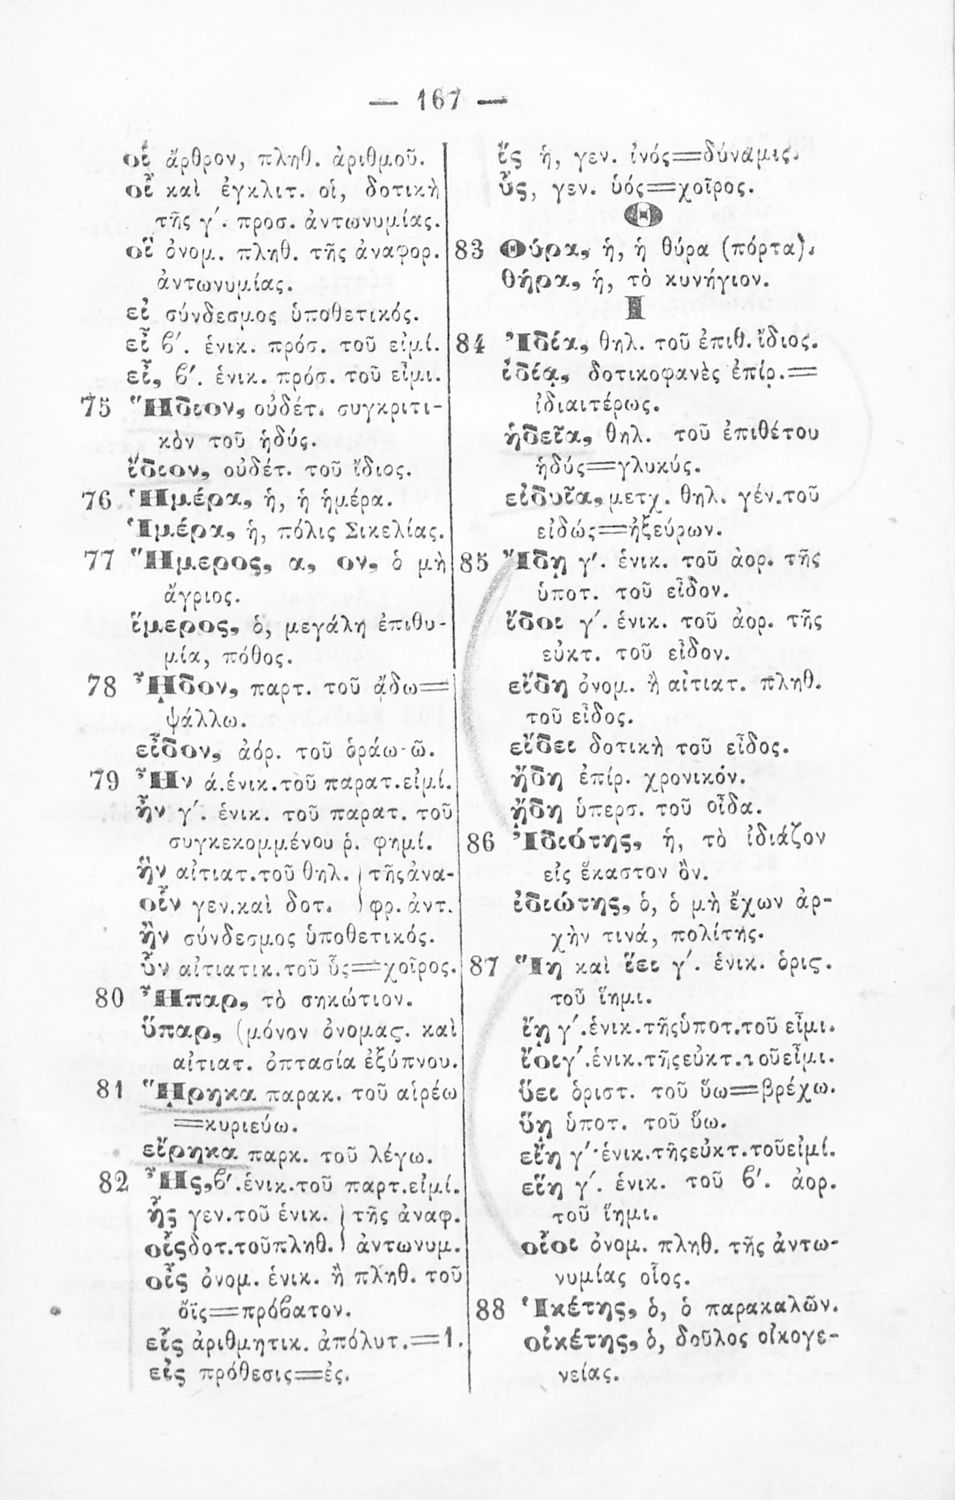 — 167 —
οἱ ἄρθρον, πληθ. ἀριθμοῦ.
οἷ καὶ ἐγκλιτ. οἱ, δοτικὴ
τῆς γ΄. προσ. ἀντωνυμίας.
οἳ ὀνομ. πληθ. τῆς ἀναφορ.
ἀντωνυμίας.
εἰ σύνδεσμος ὑποθετικός.
εἶ β΄. ἑνικ. πρόσ. τοῦ εἰμί.
εἶ, β΄. ἑνικ. πρόσ. τοῦ εἶμι.
75 Ἥδιον, οὐδέτ. συγκριτι-
κὸν τοῦ ἡδύς.
ἴδιον, οὐδέτ. τοῦ ἴδιος.
76 Ἡμέρα, ἡ, ἡ ἡμέρα.
Ἱμέρα, ἡ, πόλις Σικελίας.
77 Ἥμερος, α, ον, ὁ μὴ
ἄγριος.
ἵμερος, ὁ, μεγάλη ἐπιθυ-
μία, πόθος.
78 ᾖδον, παρτ. τοῦ ᾄδω=
ψάλλω.
εἶδον, ἀόρ. τοῦ ὁράω-ῶ.
79 Ἦν ά.ἑνικ.τοῦ παρατ.εἰμί.
ἦν γ΄. ἑνικ. τοῦ παρατ. τοῦ
συγκεκομμένου ῥ. φημί.
ἣν αἰτιατ.τοῦ θηλ. } τῆςἀνα-
οἷν γεν.καὶ δοτ. } φρ. ἀντ.
ἢν σύνδεσμος ὑποθετικός.
ὗν αἰτιατικ.τοῦ ὗς=χοῖρος.
80 Ἧπαρ, τὸ σηκώτιον.
ὕπαρ, (μόνον ὀνομας. καὶ
αἰτιατ. ὀπτασία ἐξύπνου.
81 ᾕρηκα παρακ. τοῦ αἱρέω
=κυριεύω.
εἴρηκα παρκ. τοῦ λέγω.
82 Ἦς,β΄.ἑνικ.τοῦ παρτ.εἰμί.
ἧς γεν.τοῦ ἑνικ. } τῆς ἀναφ.
οἷςδοτ.τοῦπληθ. } ἀντωνυμ.
οἶς ὀνομ. ἑνικ. ἢ πληθ. τοῦ
ὄϊς=πρόβατον.
εἷς ἀριθμητικ. ἀπόλυτ.=1.
εἰς πρόθεσις=ἐς.
ἴς ἡ, γεν. ἰνός=δύναμις.
ὗς, γεν. ὑός=χοῖρος.
Θ
83 Θύρα, ἡ, ἡ θύρα (πόρτα).
θήρα, ἡ, τὸ κυνήγιον.
Ι
84 Ἰδία, θηλ. τοῦ ἐπιθ. ἴδιος.
ἰδίᾳ, δοτικοφανὲς ἐπίρ.=
ἰδιαιτέρως.
ἡδεῖα, θηλ. τοῦ ἐπιθέτου
ἡδύς=γλυκύς.
εἰδυῖα,μετχ. θηλ. γέν.τοῦ
εἰδώς=ἠξεύρων.
85 Ἴδῃ γ΄. ἑνικ. τοῦ ἀορ. τῆς
ὑποτ. τοῦ εἶδον.
ἴδοι γ΄. ἑνικ. τοῦ ἀορ. τῆς
εὐκτ. τοῦ εἶδον.
εἴδη ὀνομ. ἢ αἰτιατ. πληθ.
τοῦ εἶδος.
εἴδει δοτικὴ τοῦ εἶδος.
ἤδη ἐπίρ. χρονικόν.
ᾔδη ὑπερσ. τοῦ οἶδα.
86 Ἰδιότης, ἡ, τὸ ἰδιάζον
εἰς ἕκαστον ὄν.
ἰδιώτης, ὁ, ὁ μὴ ἔχων ἀρ-
χὴν τινά, πολίτης.
87 Ἵη καὶ ἵει γ΄. ἑνικ. ὁρις.
τοῦ ἵημι.
ἴῃ γ΄.ἑνικ.τῆςὑποτ.τοῦ εἶμι.
ἴοιγ΄.ἑνικ.τῆςεὐκτ.τοῦεἶμι.
ὕει ὁριστ. τοῦ ὕω=βρέχω.
ὕῃ ὑποτ. τοῦ ὕω.
εἴη γ΄·ἑνικ.τῆςεὐκτ.τοῦεἰμί.
εἵη γ΄. ἑνικ. τοῦ β΄. ἀορ.
τοῦ ἵημι.
οἷοι ὀνομ. πληθ. τῆς ἀντω-
νυμίας οἷος.
88 Ἱκέτης, ὁ, ὁ παρακαλῶν.
οἰκέτης, ὁ, δοῦλος οἰκογε-
νείας.